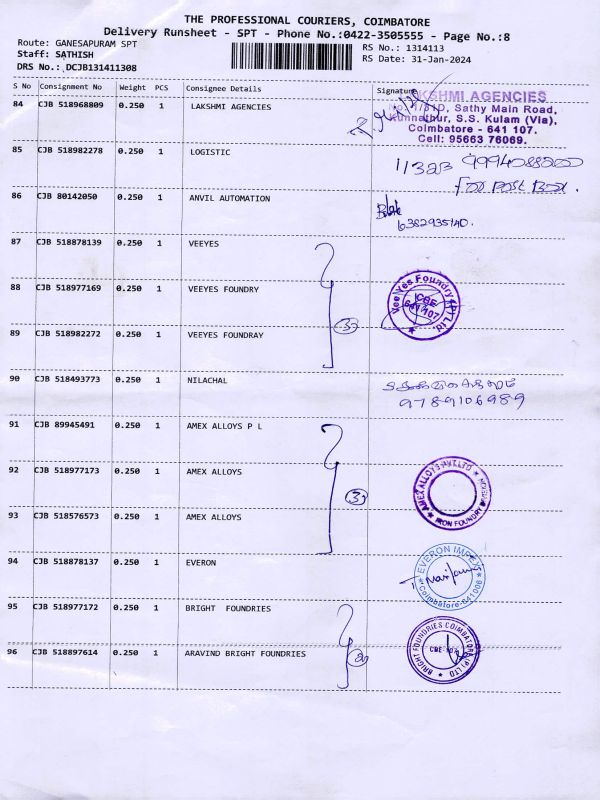 THE PROFESSIONAL COURIERS, COIMBATORE
Delivery Runsheet - SPT - Phone No.:0422-3505555 - Page No.:8
Route: GANESAPURAM SPT
Staff: SATHISH
DRS No.: DCJB131411308
RS No.: 1314113
RS Date: 31-Jan-2024
S No Consignment No Weight PCS Consignee Details Signature
84 CJB 518968809 0.250 1 LAKSHMI AGENCIES
LAKSHMI AGENCIES
Sathy Main Road,
Kunnathur, S.S. Kulam (Via),
Coimbatore - 641 107.
Cell: 95663 76069.
85 CJB 518982278 0.250 1 LOGISTIC
11323
For Post Box.
86 CJB 80142050 0.250 1 ANVIL AUTOMATION
6382935140.
87 CJB 518878139 0.250 1 VEEYES
88 CJB 518977169 0.250 1 VEEYES FOUNDRY
Vee Yes Foundry (P) Ltd
CBE
641 107
89 CJB 518982272 0.250 1 VEEYES FOUNDRAY
3
90 CJB 518493773 0.250 1 NILACHAL
9789106989
91 CJB 89945491 0.250 1 AMEX ALLOYS P L
92 CJB 518977173 0.250 1 AMEX ALLOYS
3
AMEX ALLOYS PVT LTD
IRON FOUNDRY
93 CJB 518576573 0.250 1 AMEX ALLOYS
94 CJB 518878137 0.250 1 EVERON
EVERON IMPEX
Coimbatore-641006
95 CJB 518977172 0.250 1 BRIGHT FOUNDRIES
96 CJB 518897614 0.250 1 ARAVIND BRIGHT FOUNDRIES
2
BRIGHT FOUNDRIES COIMBATORE (P) LTD
CBE-107